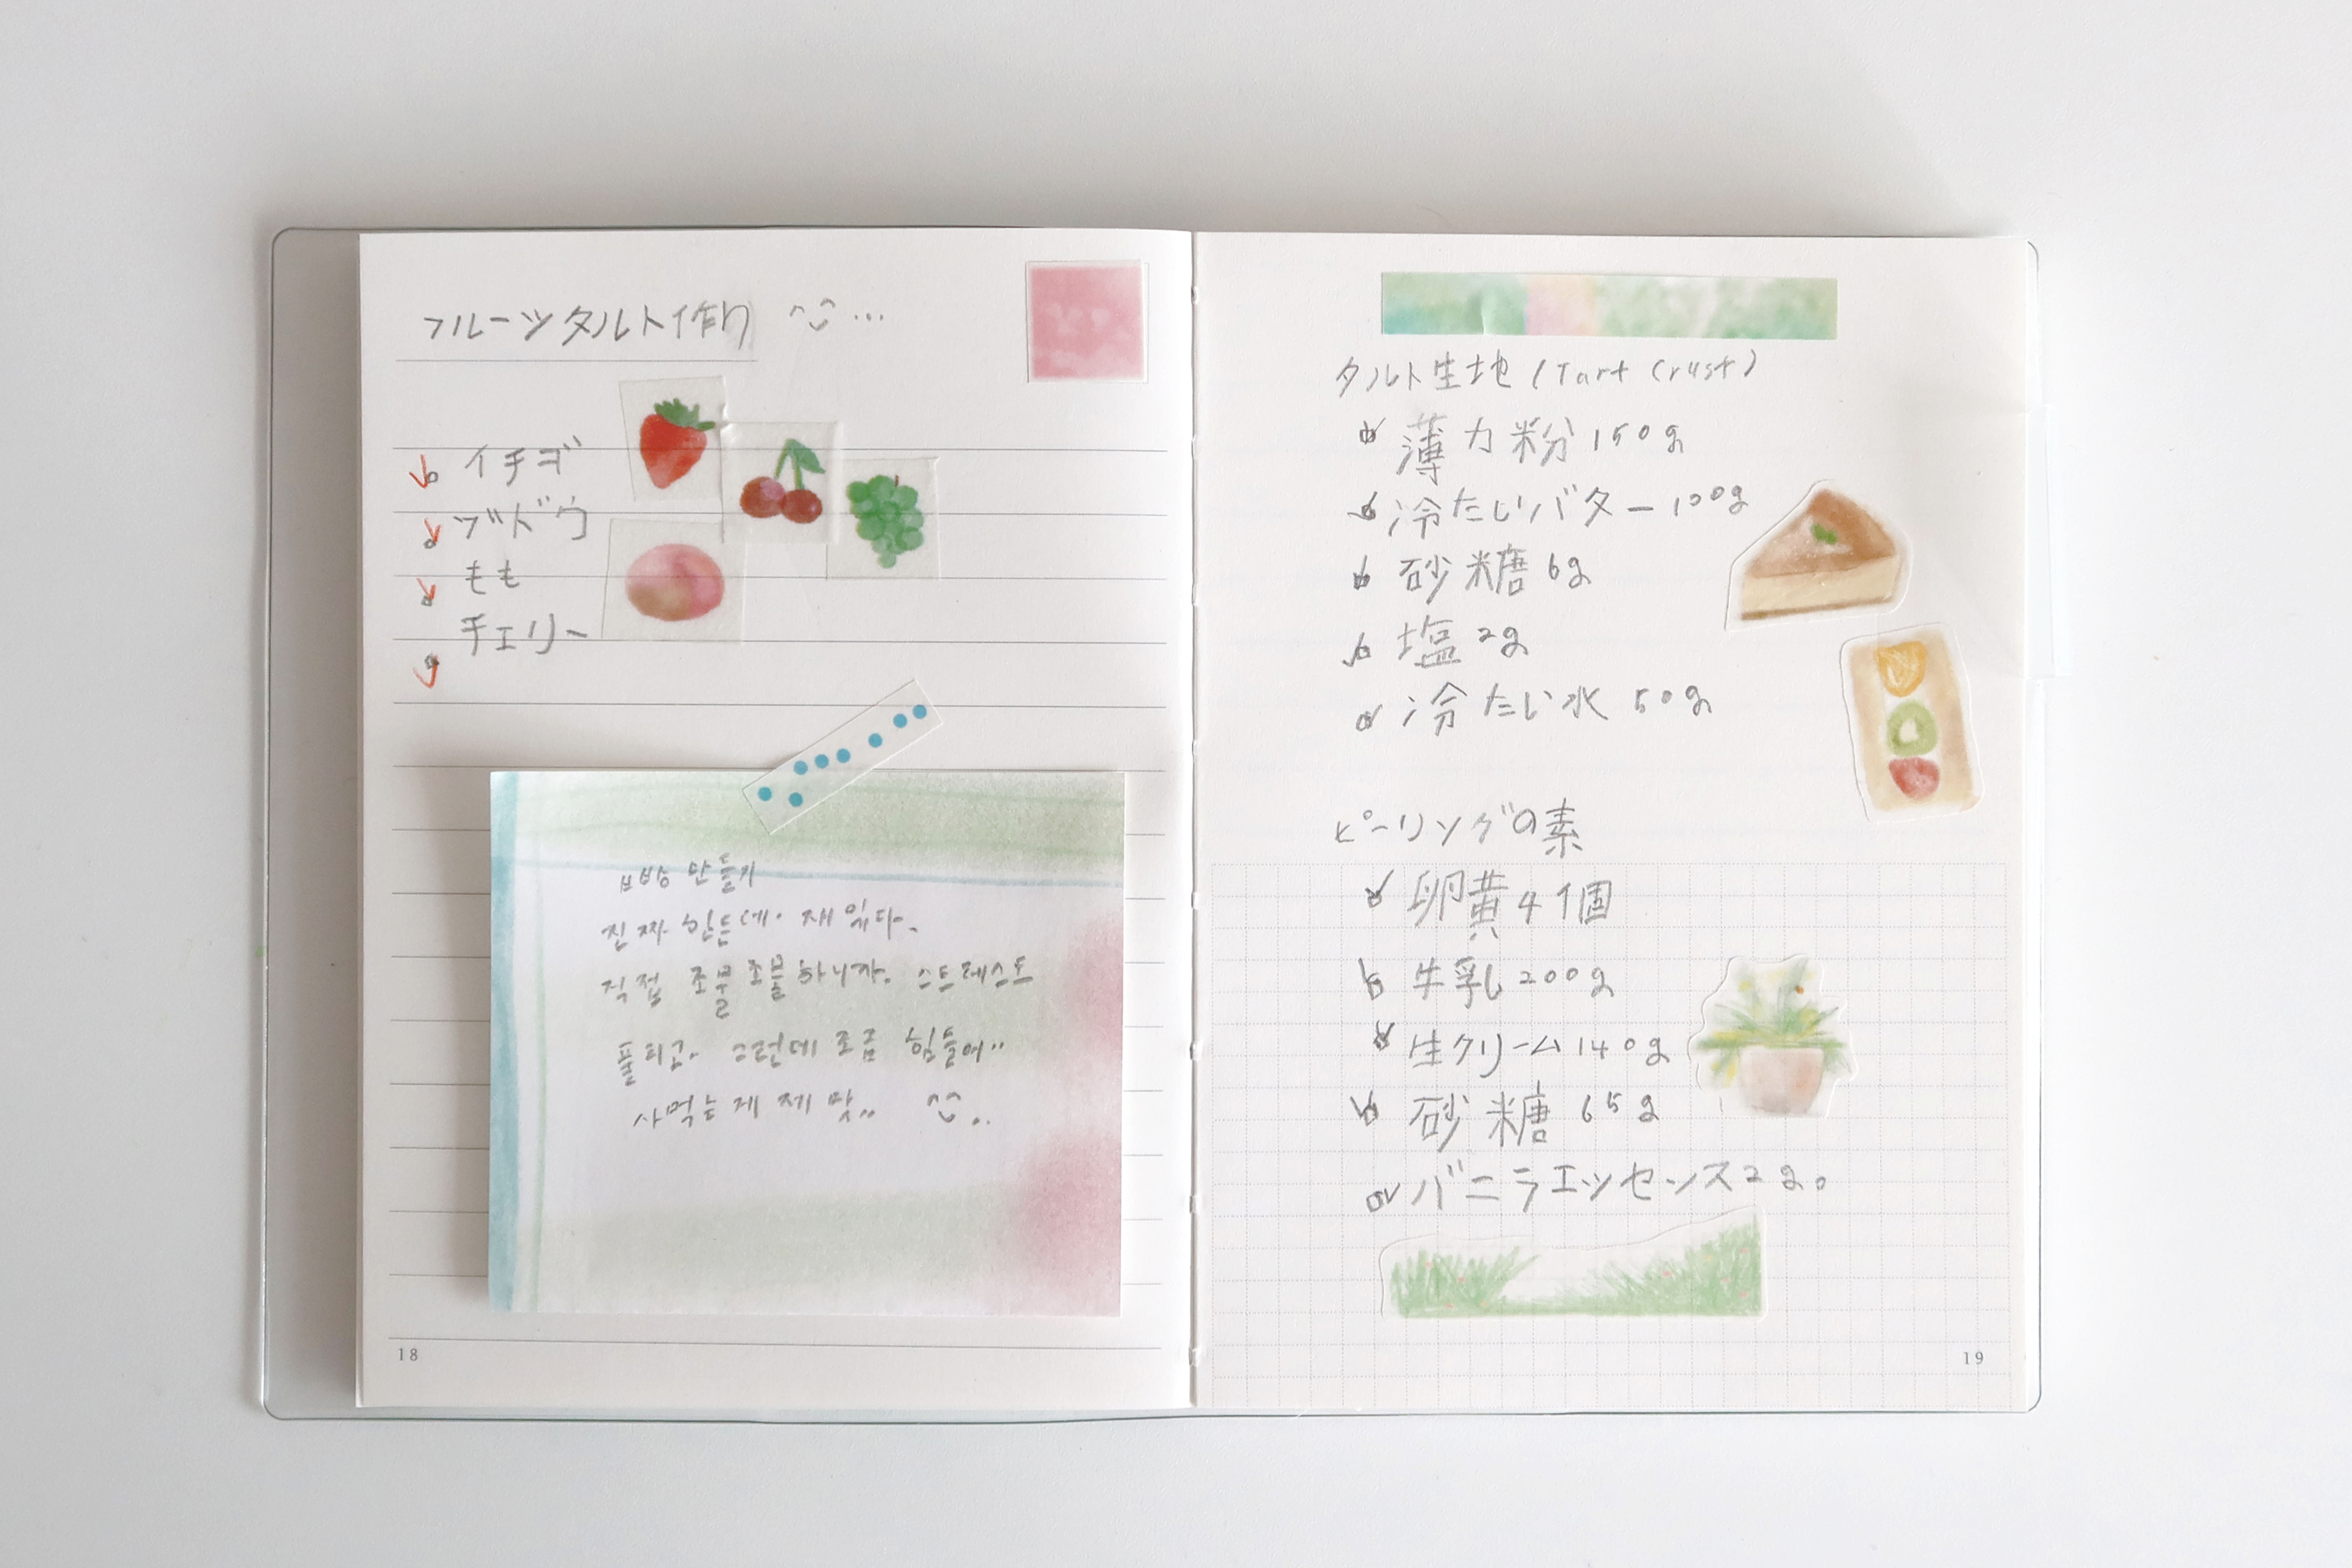 フルーツタルト作り ^^ ...
イチゴ
ブドウ
もも
チェリー
만들기
진짜 힘든데. 재밌다.
직접 조물조물 하니까. 스트레스도
풀리고. 그런데 조금 힘들어..
사먹는게 제 맛.. ^^..
18
タルト生地 (Tart Crust)
薄力粉 150g
冷たいバター 100g
砂糖 6g
塩 2g
冷たい水 50g
ピーリングの素
卵黄 4個
牛乳 200g
生クリーム 140g
砂糖 65g
バニラエッセンス 2g。
19